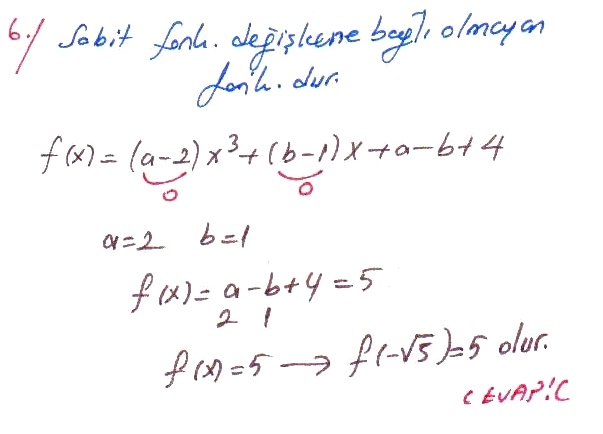 6./ Sabit fonk. değişkene bağlı olmayan
fonk. dur.
f(x) = (a-2)x³+(b-1)x+a-b+4
0 0
a=2 b=1
f(x)= a-b+4=5
2 1
f(x)=5 → f(-√5)=5 olur.
CEVAP:C